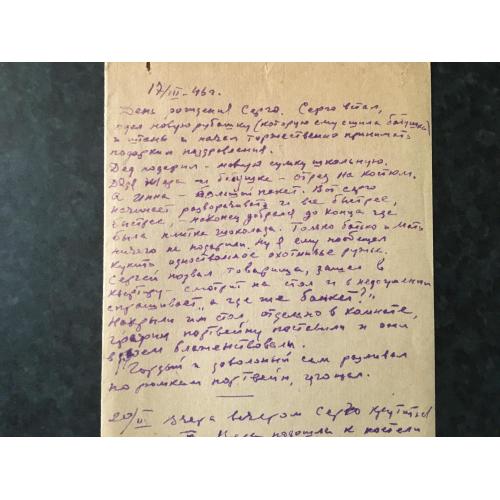 17/III-46г.
День рождения Серго. Серго встал,
одел новую рубашку (которую ему сшила бабушка)
и штаны и начал торжественно принимать
подарки поздровления.
Дед подарил - новую сумку школьную.
Дядя Жора и бабушка - отрез на костюм.
А Инна - большой пакет. Вот Серго
начинает разворачивать и все быстрее,
быстрее, - наконец добрался до конца где
была плитка шоколада. Только бабко и мать
ничего не подарили. Ну я ему пообещал
купить одноствольное охотничье ружье.
Сергей позвал товарища, зашел в
квартиру - смотрит на стол и в недоумении
спрашивает "а где же банкет?"
Накрыли им стол, отдельно в комнате,
графин портвейну поставили и они
вдвоем блаженствовали.
Гордый и довольный сам разливал
по рюмкам портвейн, угощал.
20/III Вчера вечером Серго
подошли к постели